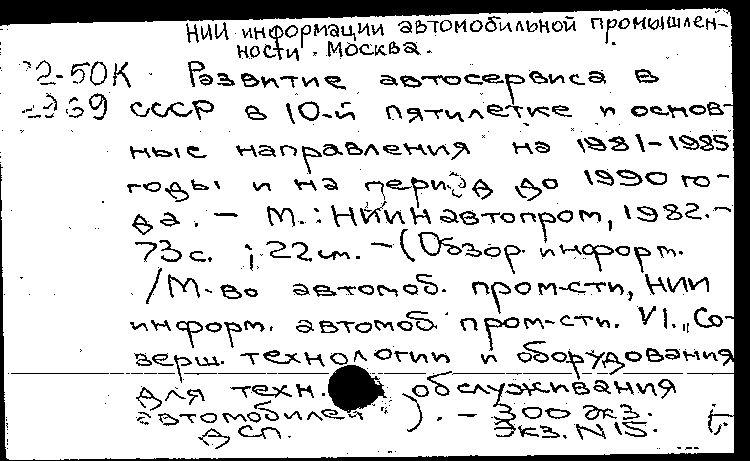 НИИ информации автомобильной промышлен-
ности. Москва.
2-50К Развитие автосервиса в
939 СССР в 10-й пятилетке и основ-
ные направления на 1981-1985
годы и на период до 1990 го-
да. - М.: НИИНавтопром, 1982.-
73 с. ; 22 см. - (Обзор. информ.
/М-во автомоб. пром-сти, НИИ
информ. автомоб. пром-сти. VI. „Со-
верш. технологии и оборудования
для техн. обслуживания
автомобилей ). - 300 экз.
ДСП. Экз. N 15.